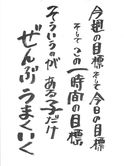 今週の目標 そして 今日の目標
そして この 一時間の目標
そういうのが ある子だけ
ぜんぶうまくいく